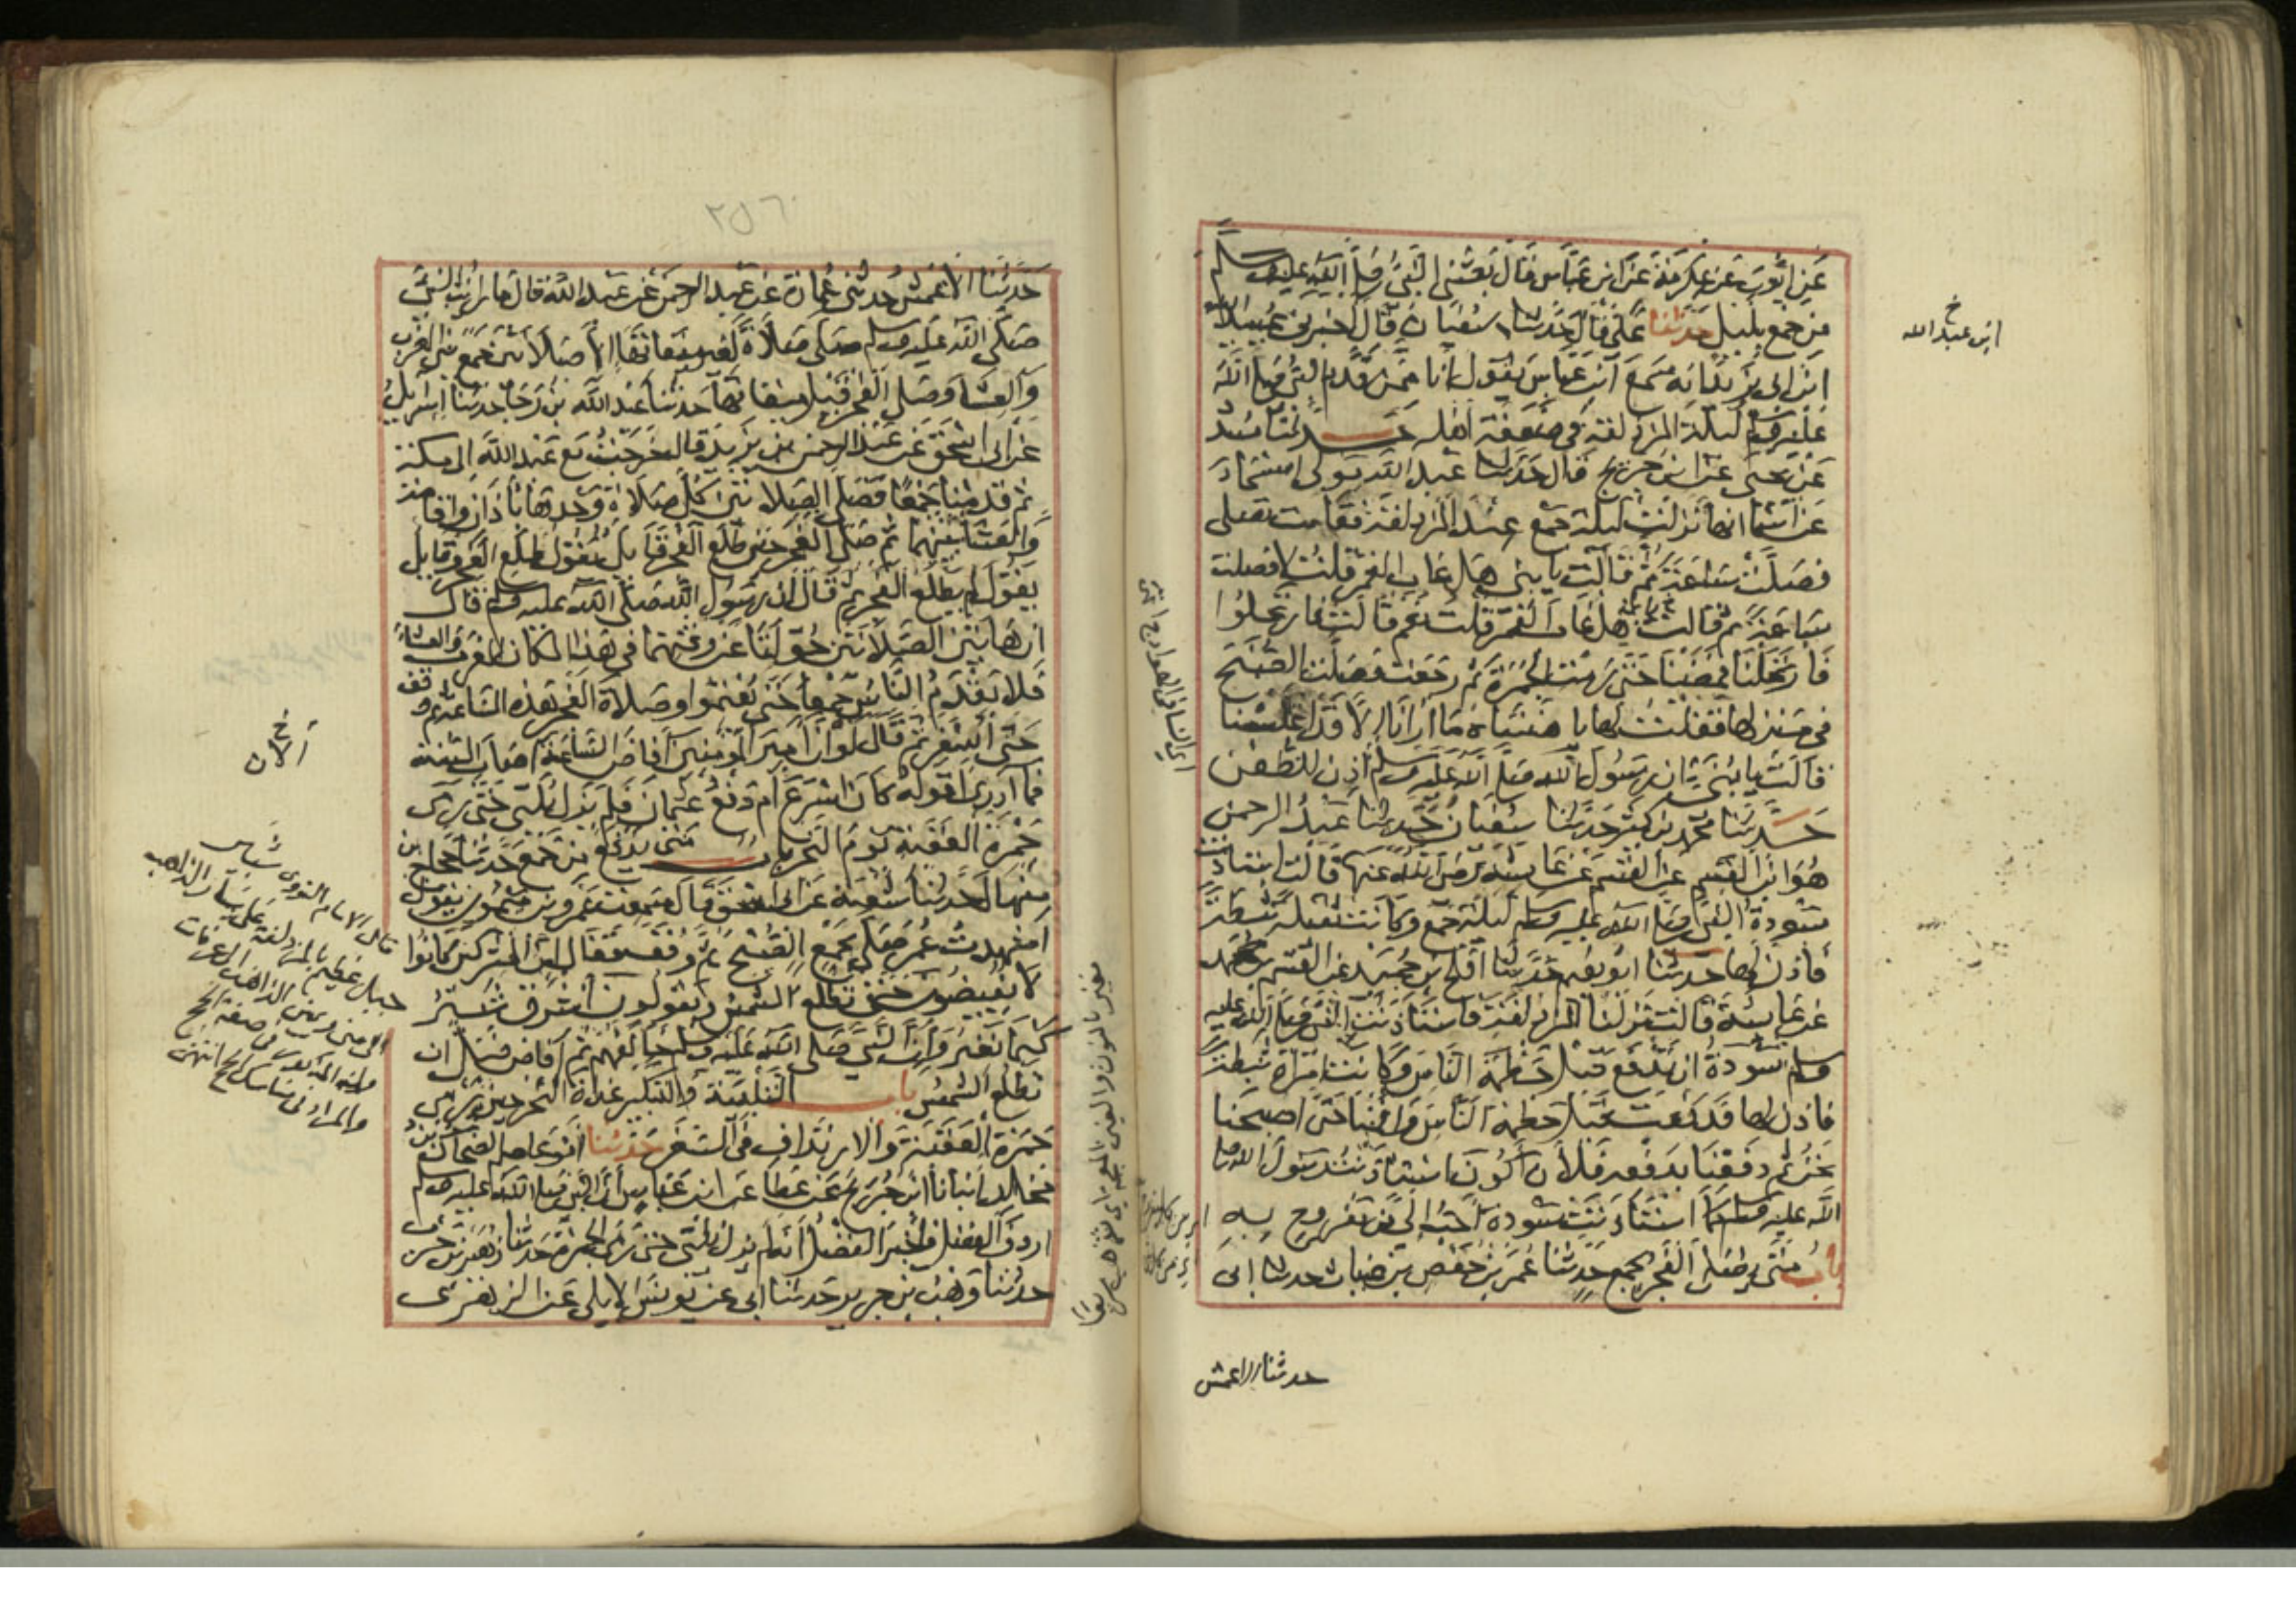 عن ايوب عن عكرمة عن ابن عباس قال بعثني النبي صلى الله عليه وسلم
من جمع بليل حدثنا علي قال حدثنا سفيان قال اخبرني عبيد الله
ابن ابي يزيد انه سمع ابن عباس يقول انا ممن قدم النبي صلى الله
عليه وسلم ليلة المزدلفة في ضعفة اهله حدثنا مسدد
عن يحيى عن ابن جريج قال حدثنا عبد الله مولى اسماء
عن اسما انها نزلت ليلة جمع عند المزدلفة فقامت تصلى
فصلت ساعة ثم قالت يا بني هل غاب القمر قلت لا فصلت
ساعة ثم قالت يا بني هل غاب القمر قلت نعم قالت فارتحلوا
فارتحلنا فمضينا حتى رمت الجمرة ثم رجعت فصلت الصبح
في منزلها فقلت لها يا هنتاه ما ارانا الا قد غلسنا
قالت يا بني ان رسول الله صلى الله عليه وسلم أذن للظعن
حدثنا محمد بن كثير حدثنا سفيان حدثنا عبد الرحمن
هو ابن القسم عن القسم عن عايشة رضى الله عنها قالت استاذنت
سودة النبي صلى الله عليه وسلم ليلة جمع وكانت ثقيلة ثبطة
فأذن لها حدثنا ابو نعيم حدثنا افلح بن حميد عن القسم بن محمد
عن عايشة قالت نزلنا المزدلفة فاستاذنت النبي صلى الله عليه
وسلم سودة ان تدفع قبل حطمة الناس وكانت امراة ثبطة
فاذن لها فدفعت قبل حطمة الناس واقمنا حتى اصبحنا
نحن ثم دفعنا بدفعه فلأن أكون استاذنت رسول الله صلى
الله عليه وسلم كما استاذنت سودة احب الي من مفروح به
باب متى يصلى الفجر بجمع حدثنا عمر بن حفص بن غياث حدثنا ابي
حدثنا الاعمش
خ
ابن عبد الله
٢٥٦
حدثنا الاعمش حدثنى عمارة عن عبد الرحمن عن عبد الله قال ما رايت النبي
صلى الله عليه وسلم صلى صلاة لغير ميقاتها الا صلاتين جمع بين المغرب
والعشا وصلى الفجر قبل ميقاتها حدثنا عبد الله بن رجا حدثنا اسرايل
عن ابى اسحق عن عبد الرحمن بن يزيد قال خرجت مع عبد الله الى مكة
ثم قدمنا جمعا فصلى الصلاتين كل صلاة وحدها باذان واقامة
والعشا بينهما ثم صلى الفجر حين طلع الفجر قايل يقول طلع الفجر وقايل
يقول لم يطلع الفجر ثم قال ان رسول الله صلى الله عليه وسلم قال
ان هاتين الصلاتين حولتا عن وقتهما في هذا المكان المغرب والعشاء
فلا يقدم الناس جمعا حتى يعتموا وصلاة الفجر هذه الساعة ثم وقف
حتى أسفر ثم قال لو أن أمير المؤمنين أفاض الساعة أصاب السنة
فما أدري أقوله كان اسرع أم دفع عثمان فلم يزل يلبي حتى رمى
جمرة العقبة يوم النحر باب متى يدفع من جمع حدثنا حجاج بن
منهال حدثنا شعبة عن ابى اسحق قال سمعت عمرو بن ميمون يقول
شهدت عمر صلى بجمع الصبح ثم وقف فقال ان المشركين كانوا
لا يفيضون حتى تطلع الشمس ويقولون اشرق ثبير
كيما نغير وإن النبي صلى الله عليه وسلم خالفهم ثم أفاض قبل ان
تطلع الشمس باب التلبية والتكبير غداة النحر حين يرمى
جمرة العقبة والارتداف في السير حدثنا أبو عاصم الضحاك بن
مخلد انبانا ابن جريج عن عطا عن ابن عباس أن النبي صلى الله عليه وسلم
اردف الفضل فأخبر الفضل أنه لم يزل يلبى حتى رمى الجمرة حدثنا زهير بن حرب
حدثنا وهب بن جرير حدثنا ابي عن يونس الايلي عن الزهري
خ
الآن
قال الامام النووي ثبير
جبل عظيم بالمزدلفة على يسار الذاهب